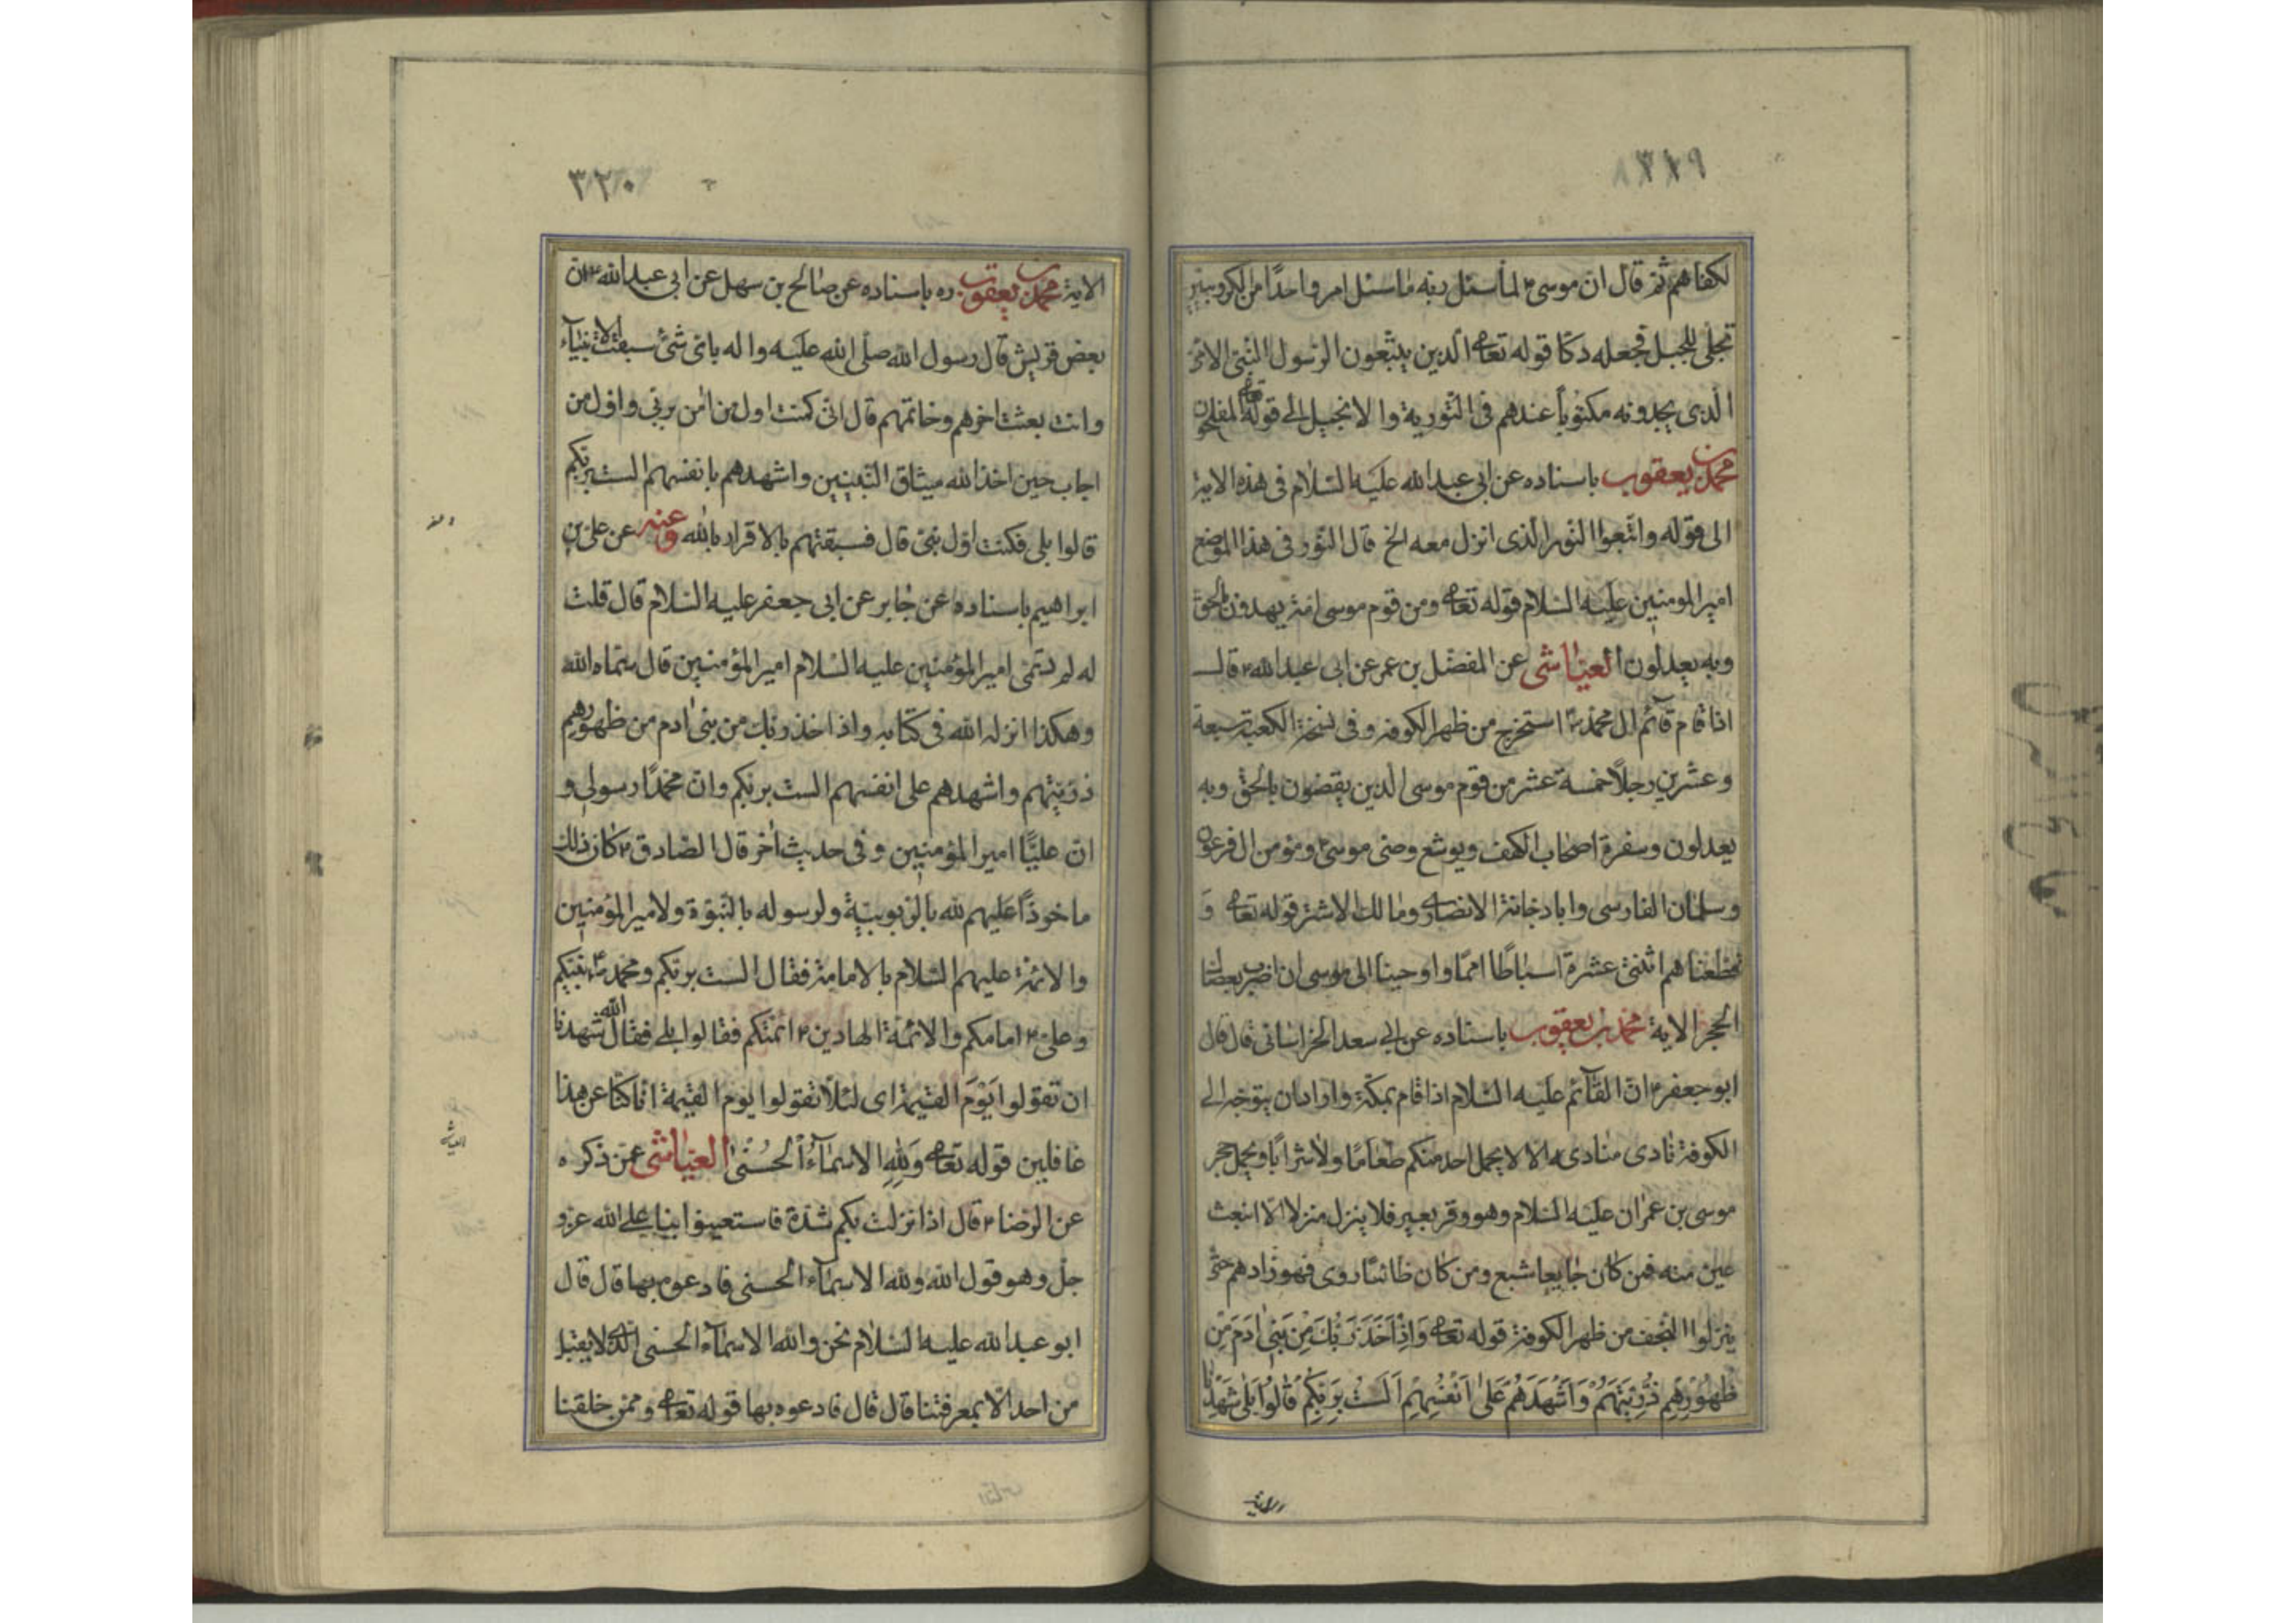 ٣١٩
لكفاهم ثم قال ان موسى ع لما سئل ربه ما سئل امر واحدًا من الكروبيين
تجلى للجبل فجعله دكا قوله تعالى الذين يتبعون الرسول النبي الامي
الذي يجدونه مكتوباً عندهم في التورية والانجيل الى قوله تعالى المفلحون
محمد بن يعقوب باسناده عن ابي عبد الله عليه السلام في هذه الاية
الى قوله واتبعوا النور الذي انزل معه الخ قال النور في هذا الموضع
امير المومنين عليه السلام قوله تعالى ومن قوم موسى امة يهدون بالحق
وبه يعدلون العياشي عن المفضل بن عمر عن ابي عبد الله ع قال
اذا قام قآئم ال محمد ع استخرج من ظهر الكوفه وفي نسخة الكعبة سبعة
وعشرين رجلاً خمسة عشر من قوم موسى الذين يقضون بالحق وبه
يعدلون وسفرة اصحاب الكهف ويوشع وصي موسى ع ومؤمن ال فرعون
وسلمان الفارسي وابا دجانة الانصاري ومالك الاشتر قوله تعالى و
قطعناهم اثنتي عشرة اسباطًا امما واوحينا الى موسى ان اضرب بعصاك
الحجر الاية محمد بن يعقوب باسناده عن ابي سعد الخراساني قال قال
ابو جعفر ع ان القآئم عليه السلام اذا قام بمكة واراد ان يتوجه الى
الكوفة نادى منادى ه الا لا يحمل احد منكم طعامًا ولا شرابًا ويحمل حجر
موسى بن عمران عليه السلام وهو وقر بعير فلا ينزل منزلا الا انبعث
عين منه فمن كان جايعا شبع ومن كان ظامئا روى فهو زادهم حتى
ينزلوا النجف من ظهر الكوفة قوله تعالى وَاِذْ اَخَذَ رَبُّكَ مِنْ بَنِي ادَمَ مِنْ
ظُهُوْرِهِمْ ذُرِّيَّتَهُمْ وَاَشْهَدَهُمْ عَلىٰ اَنْفُسِهِمْ اَلَسْتُ بِرَبِّكُمْ قٰالُوْا بَلىٰ شَهِدْنا
٣٢٠
الاية محمد بن يعقوب ره باسناده عن صالح بن سهل عن ابي عبد الله ع ان
بعض قريش قال رسول الله صلى الله عليه واله باي شئ سبقت الانبيآء
وانت بعثت اخرهم وخاتمهم قال اني كنت اول من امن بربي واول من
اجاب حين اخذ الله ميثاق النبيين واشهدهم بانفسهم الست بربكم
قالوا بلى فكنت اول نبي قال فسبقتهم بالاقرار بالله وعنه عن علي بن
ابراهيم باسناده عن جابر عن ابي جعفر عليه السلام قال قلت
له لم سمي امير المؤمنين عليه السلام امير المؤمنين قال سماه الله
وهكذا انزله الله في كتابه واذ اخذ ربك من بني ادم من ظهورهم
ذريتهم واشهدهم على انفسهم الست بربكم وان محمدًا رسولي و
ان عليًّا امير المؤمنين وفي حديث اخر قال الصادق ع كان ذلك
ماخوذًا عليهم لله بالربوبية ولرسوله بالنبوة ولامير المؤمنين
والائمة عليهم السلام بالامامة فقال الست بربكم ومحمد ص نبيكم
وعلي ع امامكم والائمة الهادين ع ائمتكم فقالوا بلى فقال الله شهدنا
ان تقولوا يَوْمَ القيمة اى لئلا تقولوا يوم القيمة انا كنا عن هذا
غافلين قوله تعالى وَلِلّٰهِ الاسمآءُ الْحُسْنٰى العياشي عمن ذكره
عن الرضا ع قال اذا نزلت بكم شدة فاستعينوا بنا على الله عز و
جل وهو قول الله ولله الاسمآء الحسنى فادعوه بها قال قال
ابو عبد الله عليه السلام نحن والله الاسمآء الحسنى الذي لا يقبل
من احد الا بمعرفتنا قال قال فادعوه بها قوله تعالى وممن خلقنا
العياشي